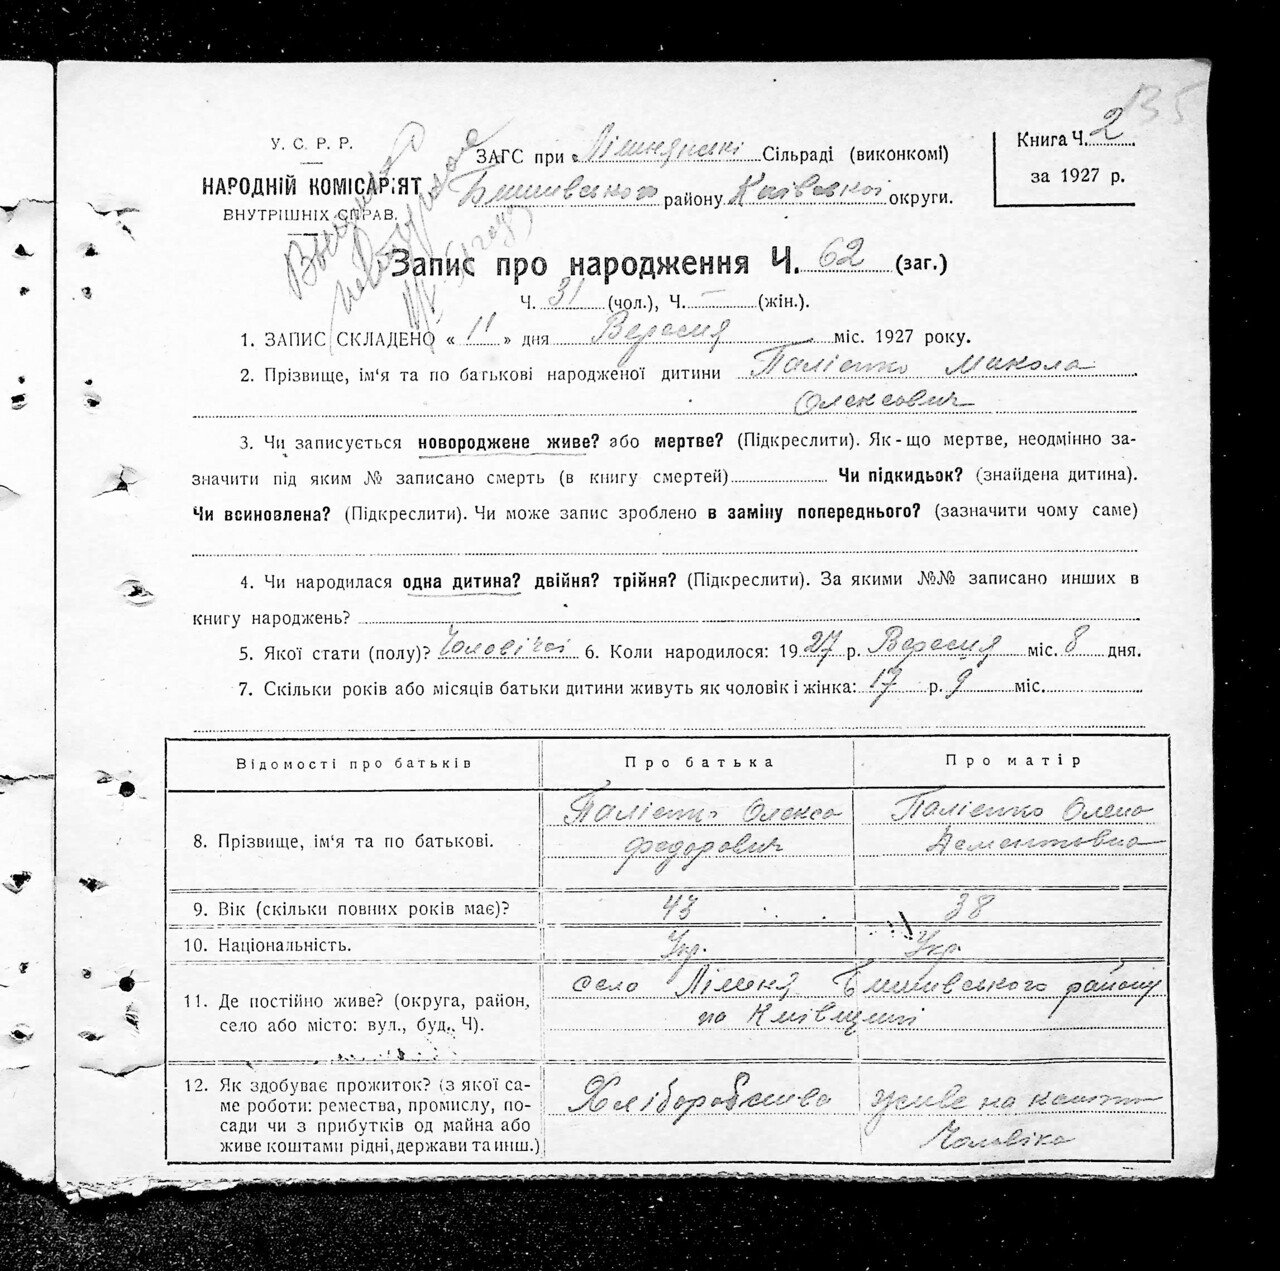 135
У. С. Р. Р.
НАРОДНІЙ КОМІСАРІЯТ
ВНУТРІШНІХ СПРАВ.
ЗАГС при Сільраді (виконкомі)
району Київської округи.
Книга Ч. 2
за 1927 р.
Запис про народження Ч. 62 (заг.)
Ч. 31 (чол.), Ч. — (жін.).
1. ЗАПИС СКЛАДЕНО „ 11 " дня Вересня міс. 1927 року.
2. Прізвище, ім'я та по батькові народженої дитини Палієнко Микола
Олексович
3. Чи записується новороджене живе? або мертве? (Підкреслити). Як-що мертве, неодмінно за-
значити під яким № записано смерть (в книгу смертей) Чи підкидьок? (знайдена дитина).
Чи всиновлена? (Підкреслити). Чи може запис зроблено в заміну попереднього? (зазначити чому саме)
4. Чи народилася одна дитина? двійня? трійня? (Підкреслити). За якими №№ записано инших в
книгу народжень?
5. Якої стати (полу)? Чоловічої 6. Коли народилося: 1927 р. Вересня міс. 8 дня.
7. Скільки років або місяців батьки дитини живуть як чоловік і жінка: 17 р. 9 міс.
Відомості про батьків Про батька Про матір
8. Прізвище, ім'я та по батькові. Палієнко Олекса Федорович Палієнко Олена Дементовна
9. Вік (скільки повних років має)? 43 38
10. Національність. Укр. Укр.
11. Де постійно живе? (округа, район,
село або місто: вул., буд., Ч).
село району
на Київщині
12. Як здобуває прожиток? (з якої са-
ме роботи: ремества, промислу, по-
сади чи з прибутків од майна або
живе коштами рідні, держави та инш.)
Хліборобства
живе на кошти
Чоловіка